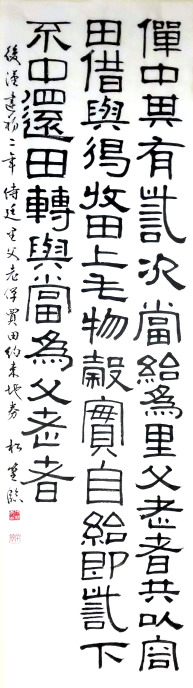 僤中其有訾次當給為里父老者共以容
田借與得收田上毛物穀實自給即訾下
不中還田轉與當為父老者
後漢建初二年侍廷里父老僤買田約束地券 松